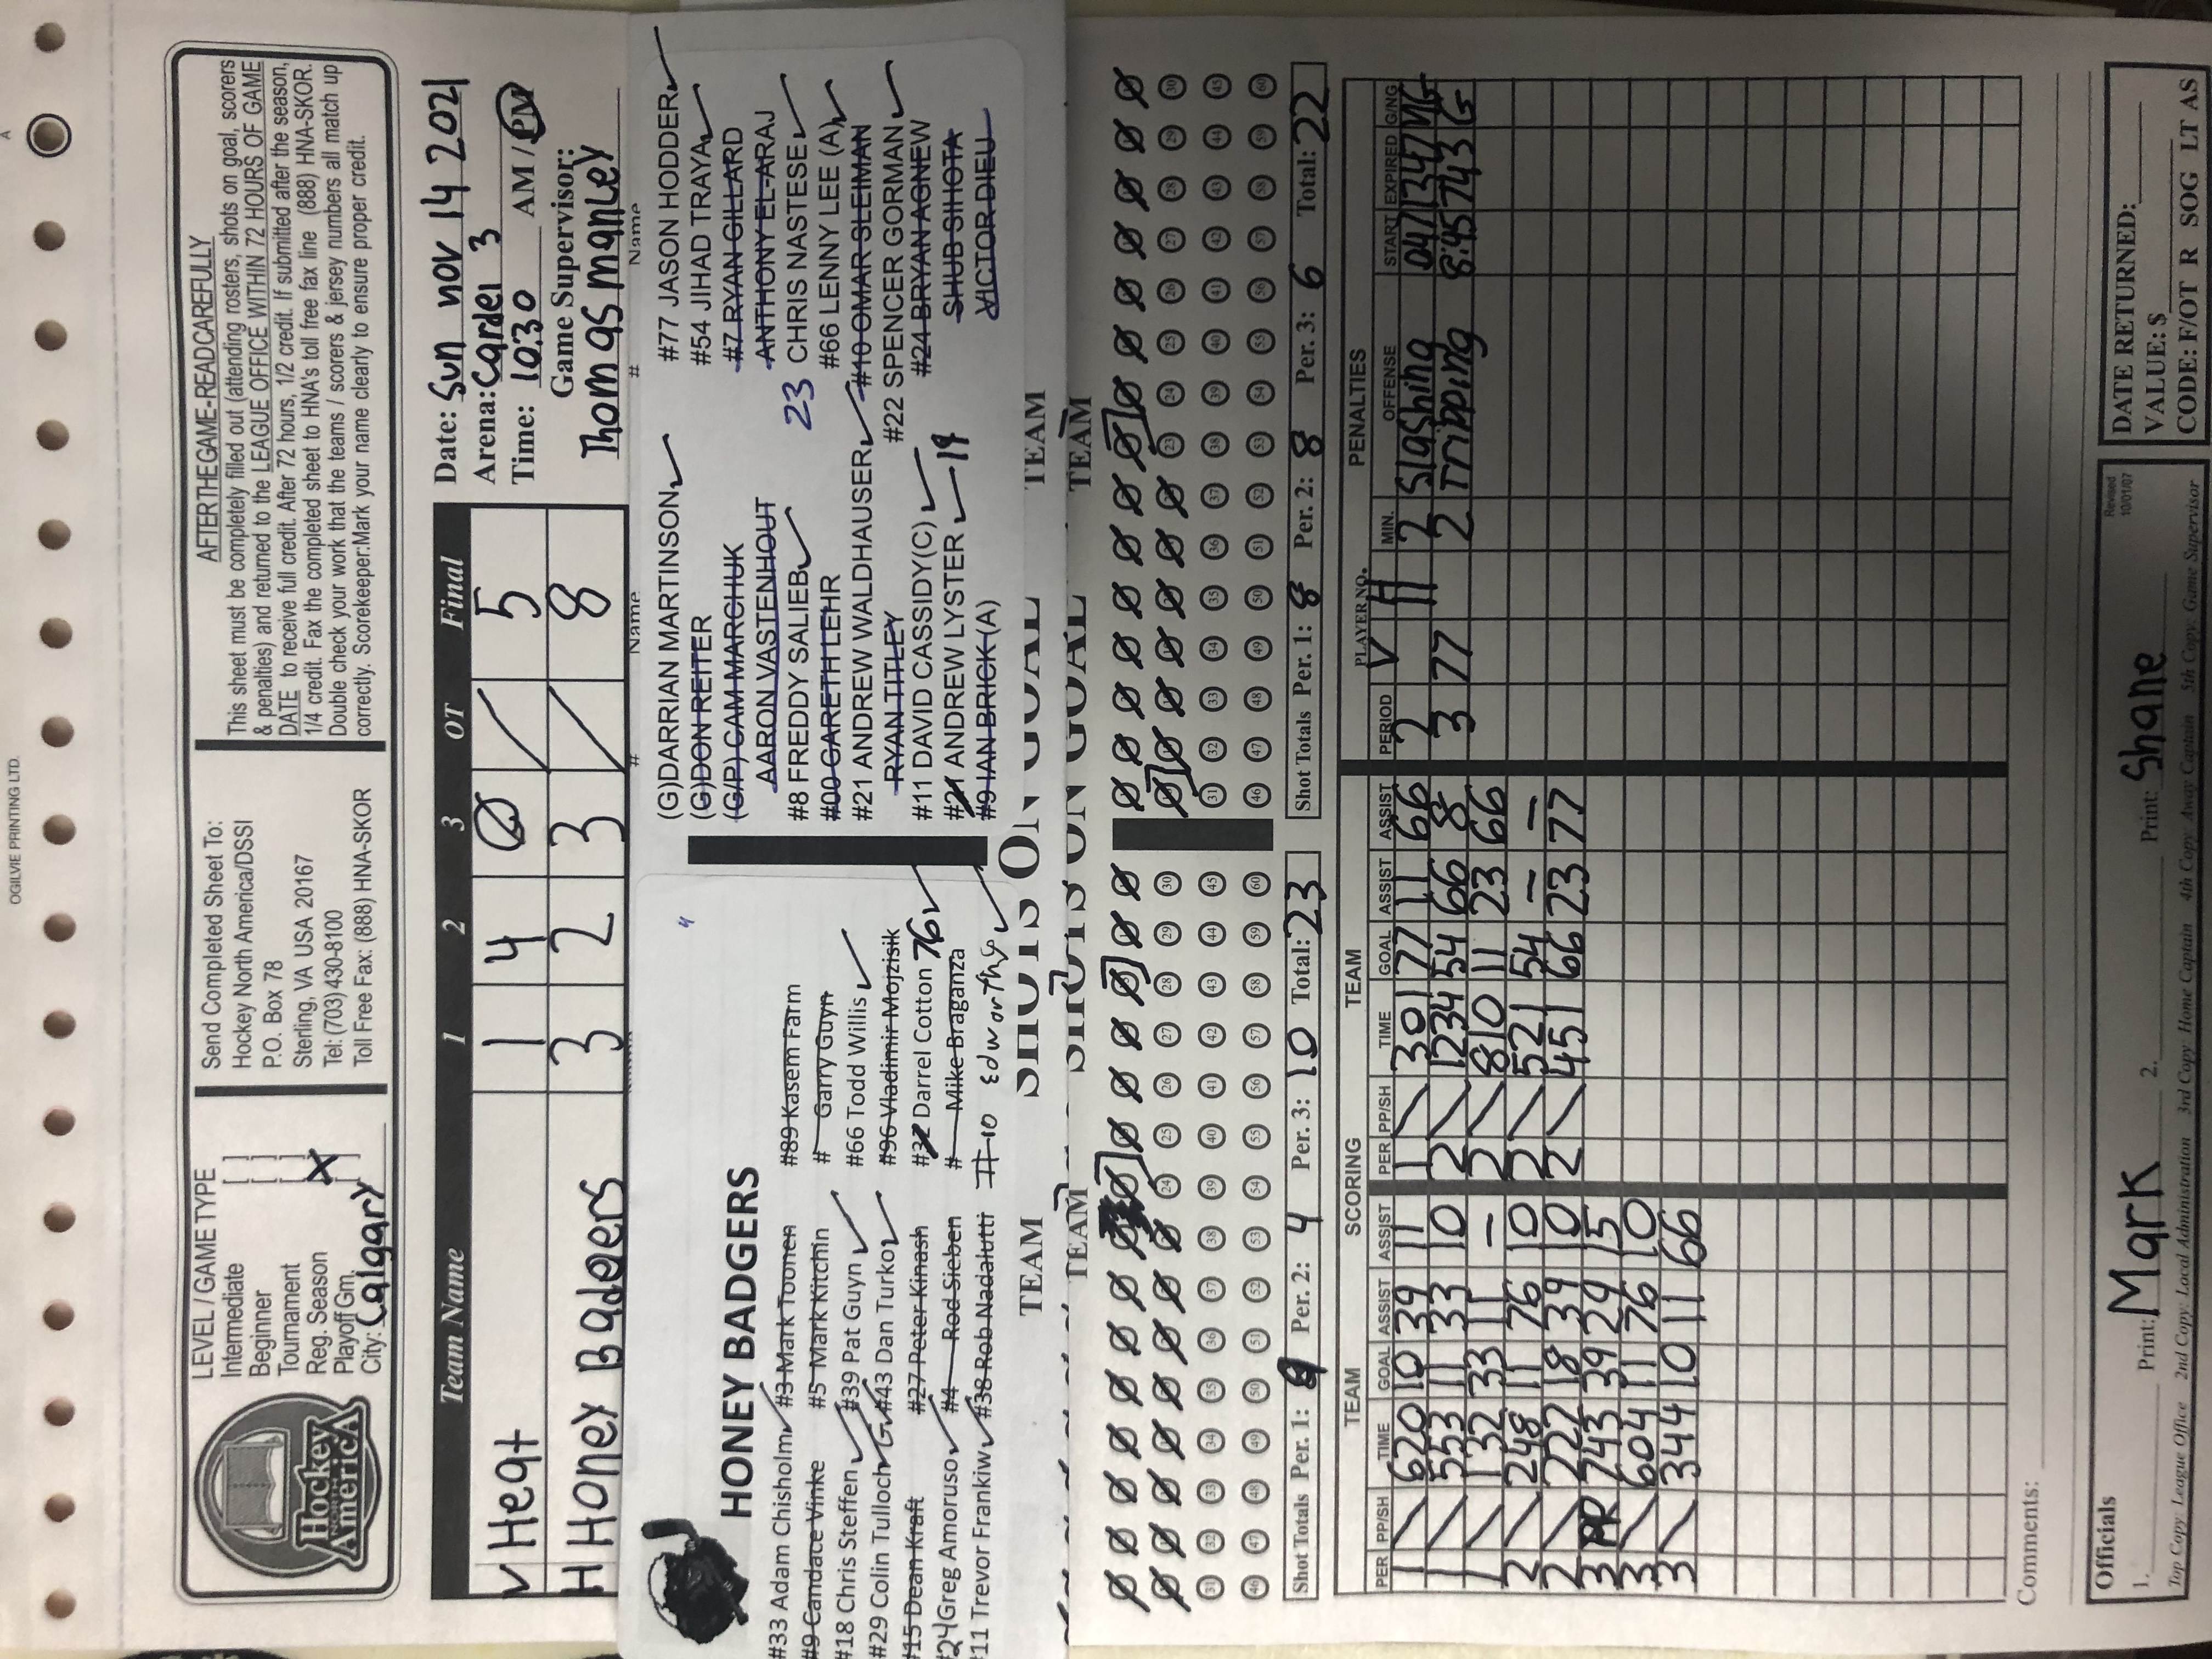 OGILVIE PRINTING LTD.
LEVEL / GAME TYPE
Intermediate [ ]
Beginner [ ]
Tournament [ ]
Reg. Season [X]
Playoff Gm. [ ]
City: Calgary
Hockey
NORTH
AMERICA
Send Completed Sheet To:
Hockey North America/DSSI
P.O. Box 78
Sterling, VA USA 20167
Tel: (703) 430-8100
Toll Free Fax: (888) HNA-SKOR
AFTER THE GAME-READ CAREFULLY
This sheet must be completely filled out (attending rosters, shots on goal, scorers
& penalties) and returned to the LEAGUE OFFICE WITHIN 72 HOURS OF GAME
DATE to receive full credit. After 72 hours, 1/2 credit. If submitted after the season,
1/4 credit. Fax the completed sheet to HNA's toll free fax line (888) HNA-SKOR.
Double check your work that the teams / scorers & jersey numbers all match up
correctly. Scorekeeper:Mark your name clearly to ensure proper credit.
Team Name 1 2 3 OT Final
V Heat 1 4 Ø / 5
H Honey Badgers 3 2 3 / 8
Date: Sun nov 14 2021
Arena: Cardel 3
Time: 1030 AM / PM
Game Supervisor:
Thomas Manley
HONEY BADGERS
4
#33 Adam Chisholm
#9 Candace Vinke
#18 Chris Steffen
#29 Colin Tulloch G
#15 Dean Kraft
#24 Greg Amoruso
#11 Trevor Frankiw
#3 Mark Toonen
#5 Mark Kitchin
#39 Pat Guyn
#43 Dan Turko
#27 Peter Kinash
#4 Rod Sieben
#38 Rob Nadalutti
#89 Kasem Farm
# Garry Guyn
#66 Todd Willis
#96 Vladimir Mojzisik
#32 Darrel Cotton 76
# Mike Braganza
#10 Edworthy
# Name # Name
(G)DARRIAN MARTINSON
(G)DON REITER
(G/P) CAM MARCIUK
AARON VASTENHOUT
#8 FREDDY SALIEB
#00 GARETH LEHR
#21 ANDREW WALDHAUSER
RYAN TITLEY
#11 DAVID CASSIDY(C)
#21 ANDREW LYSTER 19
#9 IAN BRICK (A)
#77 JASON HODDER
#54 JIHAD TRAYA
#7 RYAN GILLARD
ANTHONY EL-ARAJ
23 CHRIS NASTESE
#66 LENNY LEE (A)
#10 OMAR SLEIMAN
#22 SPENCER GORMAN
#24 BRYAN AGNEW
SHUB SIHOTA
VICTOR DIEU
TEAM SHOTS ON GOAL TEAM
TEAM SHOTS ON GOAL TEAM
24 25 26 27 28 29 30
31 32 33 34 35 36 37 38 39 40 41 42 43 44 45
46 47 48 49 50 51 52 53 54 55 56 57 58 59 60
Shot Totals Per. 1: 9 Per. 2: 4 Per. 3: 10 Total: 23
23 24 25 26 27 28 29 30
31 32 33 34 35 36 37 38 39 40 41 42 43 44 45
46 47 48 49 50 51 52 53 54 55 56 57 58 59 60
Shot Totals Per. 1: 8 Per. 2: 8 Per. 3: 6 Total: 22
TEAM SCORING TEAM
PER PP/SH TIME GOAL ASSIST ASSIST
1 / 620 10 39 11
1 / 553 11 33 10
1 / 132 33 11 –
2 / 248 11 76 10
2 / 227 18 39 10
3 PP 743 39 29 15
3 / 604 11 76 10
3 / 344 10 11 66
PER PP/SH TIME GOAL ASSIST ASSIST
1 / 301 77 11 66
2 / 1234 54 66 8
2 / 810 11 23 66
2 / 521 54 – –
2 / 451 66 23 77
PENALTIES
PERIOD PLAYER NO. V H MIN. OFFENSE START EXPIRED G/NG
2 11 2 Slashing 047 1347 NG
3 77 2 Tripping 8:45 743 G
Comments:
Officials
1. Print: Mark 2. Print: Shane
Revised
10/01/07
DATE RETURNED:
VALUE: $
CODE: F/OT R SOG LT AS
Top Copy League Office 2nd Copy: Local Administration 3rd Copy: Home Captain 4th Copy Away Captain 5th Copy: Game Supervisor